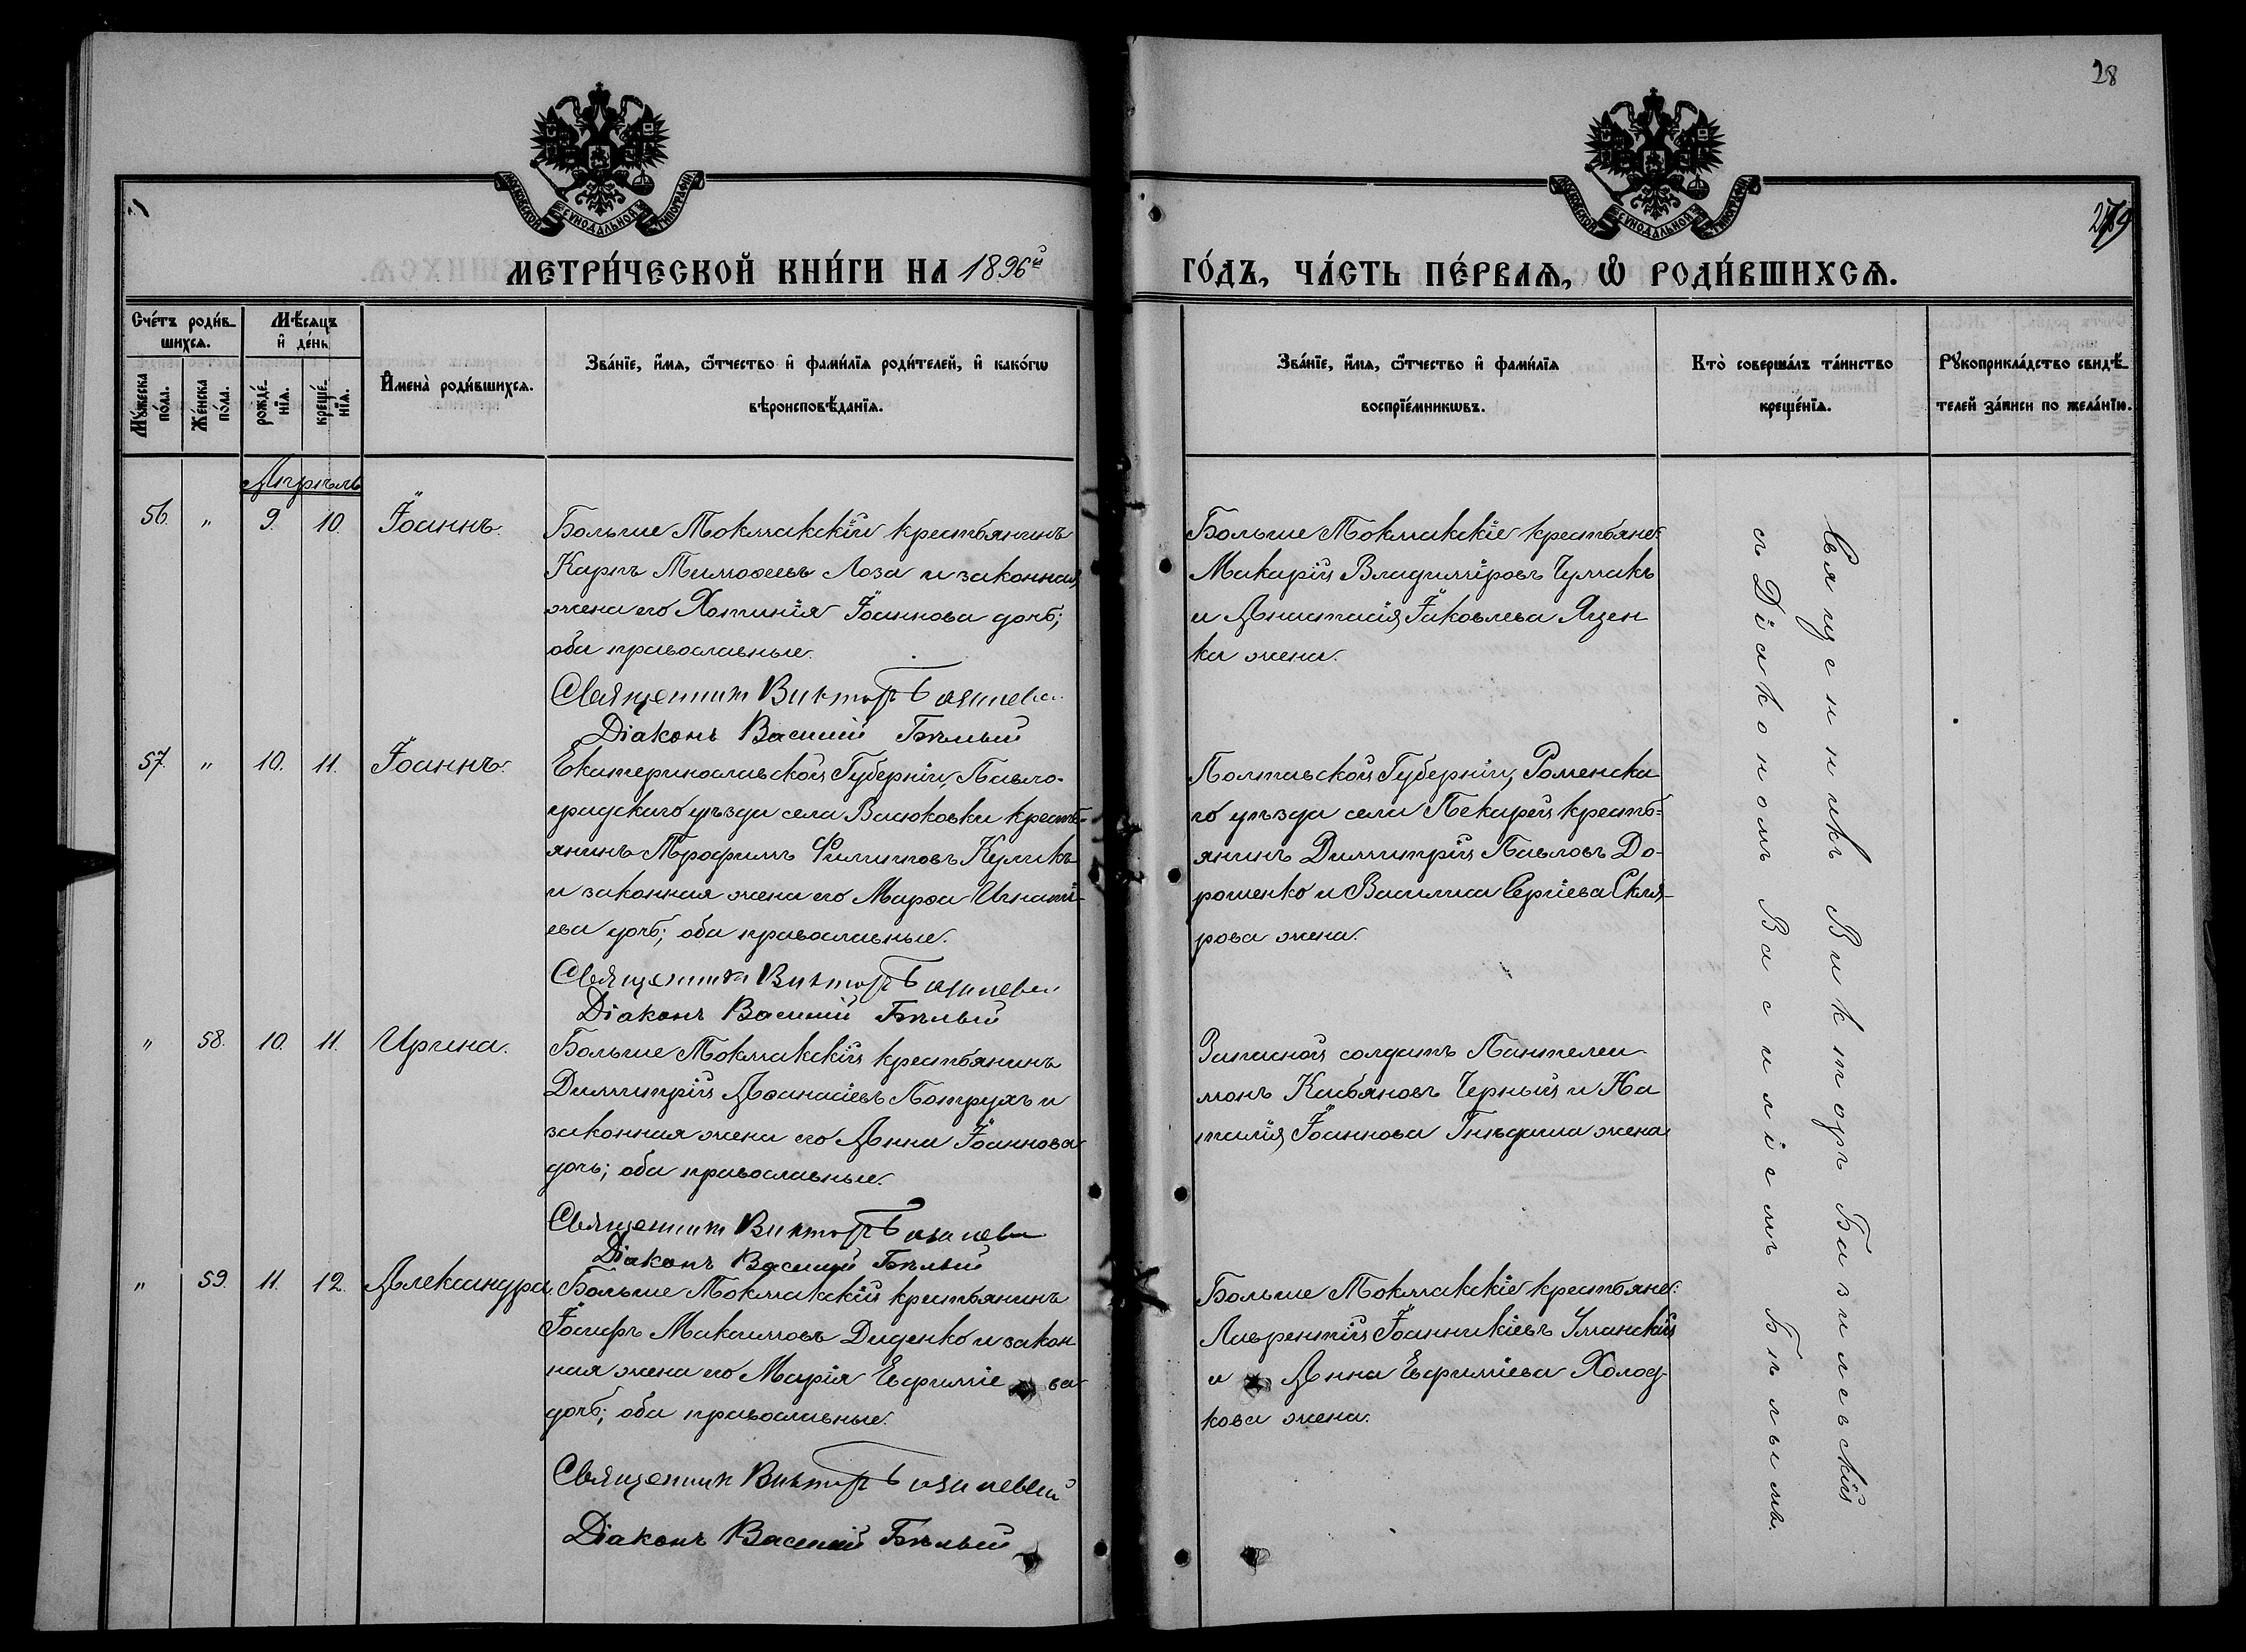 28
279
МОСКОВСКОЙ СѴНОДАЛЬНОЙ ТИПОГРАФІИ
МОСКОВСКОЙ СѴНОДАЛЬНОЙ ТИПОГРАФІИ
МЕТРИ́ЧЕСКОЙ КНИ́ГИ НА 1896й ГО́ДЪ, ЧА́СТЬ ПЕ́РВАѦ, Ѡ РОДИ́ВШИХСѦ.
Сче́тъ роди́в-
шихсѧ.
Мѣ́сѧцъ
и҆ де́нь
Мꙋ́жеска
пола.
Же́нска
по́ла.
рожде́-
нїѧ.
креще́-
нїѧ.
И҆мена̀ роди́вшихсѧ.
Зва́нїе, и҆́мѧ, ѻ҆́тчество и҆ фами́лїѧ роди́телей, и҆ како́гѡ
вѣроисповѣ́данїѧ.
Зва́нїе, и҆́мѧ, ѻ҆́тчество и҆ фами́лїѧ
воспрїе́мникѡвъ.
Кто̀ соверша́лъ та́инство
креще́нїѧ.
Рꙋкоприкла́дство свидѣ́-
телей за́писи по жела́нїю.
Апрѣль
56. „ 9. 10. Іоаннъ.
Больше Токмакскій крестьянинъ
Карпъ Тимоѳеевъ Лоза и законная
жена его Хотинія Іоаннова дочь;
оба православные.
Священникъ Викторъ Базилевск
Діаконъ Василій Бѣлый
Больше Токмакскіе крестьяне:
Макарій Владиміровъ Чумакъ
и Анастасія Іаковлева Яцен
ка жена.
57. „ 10. 11. Іоаннъ.
Екатеринославской Губерніи, Павло-
градскаго уѣзда села Васюковки кресть-
янинъ Трофимъ Филипповъ Куликъ
и законная жена его Марѳа Игнаті-
ева дочь; оба православные.
Священникъ Викторъ Базилевск
Діаконъ Василій Бѣлый
Полтавской Губерніи, Роменска
го уѣзда села Пекарей кресть-
янинъ Димитрій Павловъ До-
рошенко и Василиса Сергіева Скля-
рова жена.
„ 58. 10. 11. Ирина.
Больше Токмакскій крестьянинъ
Димитрій Аѳанасіевъ Потрухъ и
законная жена его Анна Іоаннова
дочь; оба православные.
Священникъ Викторъ Базилевск
Діаконъ Василій Бѣлый
Запасной солдатъ Пантелеи
монъ Касьяновъ Черный и На
талія Іоаннова Гнѣдаша жена
„ 59. 11. 12. Александра.
Больше Токмакскій крестьянинъ
Іосифъ Максимовъ Диденко и закон
ная жена его Марія Евфиміе ва
дочь; оба православные.
Священникъ Викторъ Базилевскій
Діаконъ Василій Бѣлый
Больше Токмакскіе крестьяне:
Лаврентій Іоанникіевъ Уманскій
и Анна Евфиміева Холод-
кова жена.
Священникъ Викторъ Базилевскій
съ Діакономъ Василіемъ Бѣлымъ.